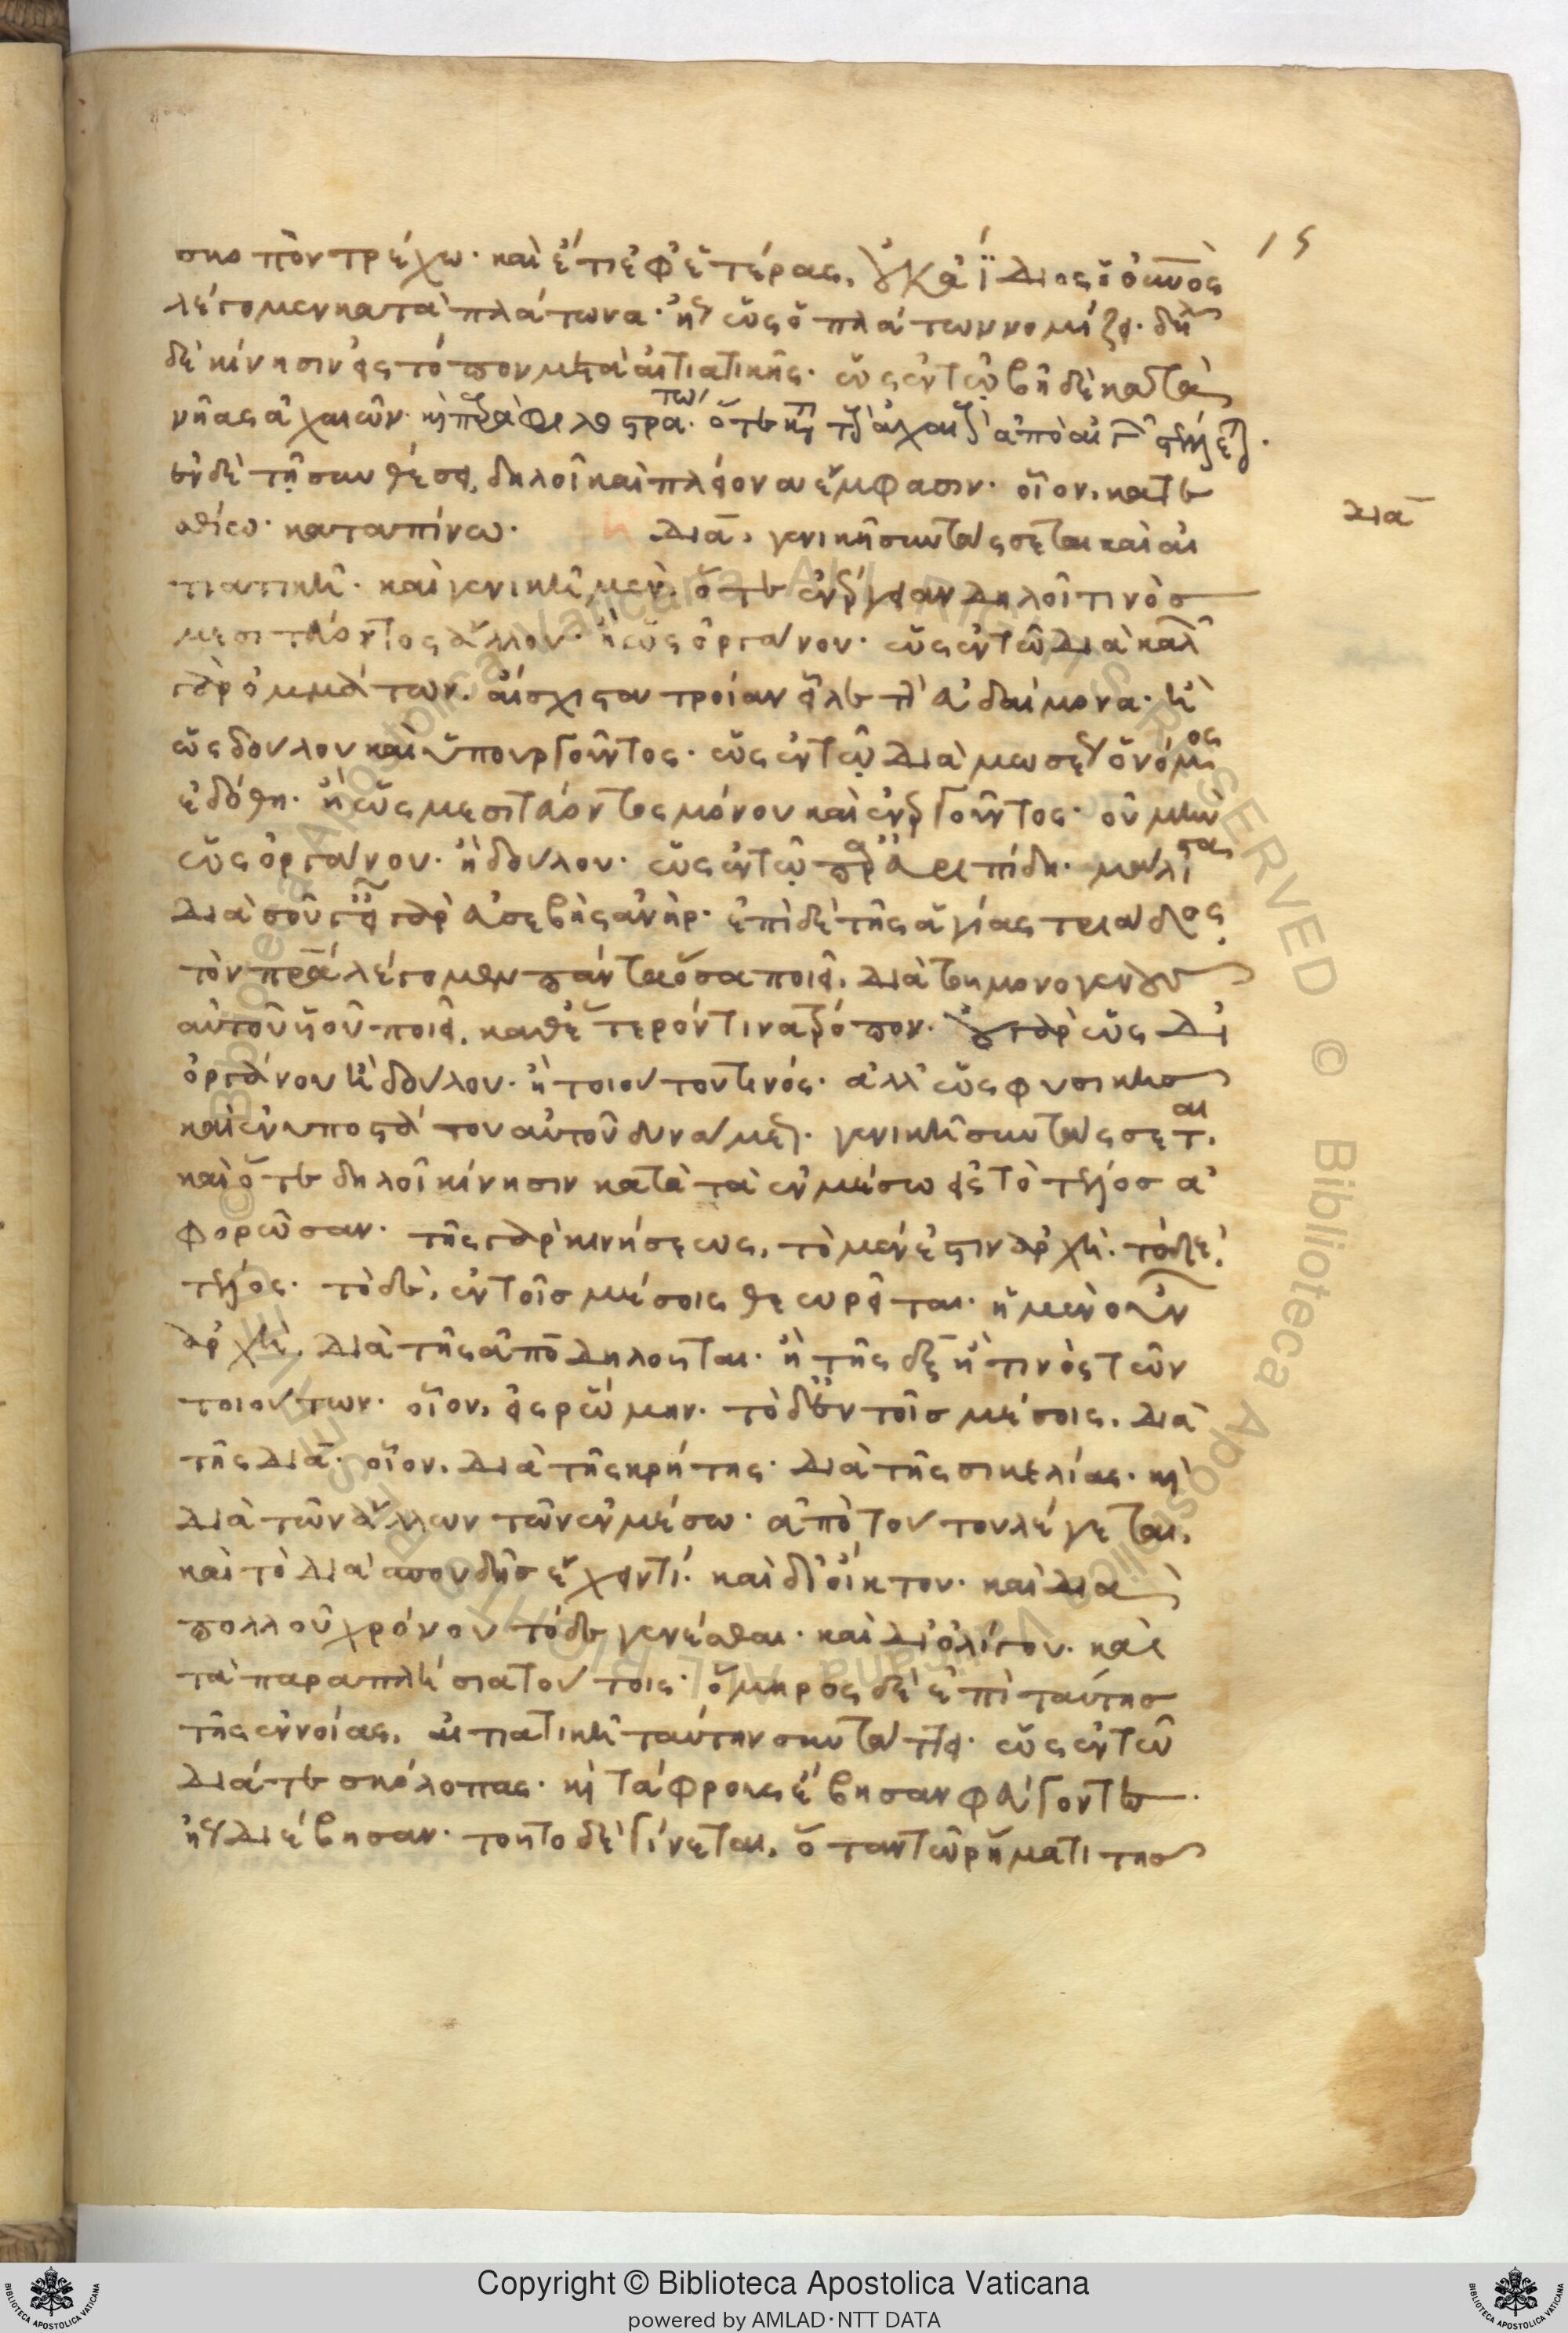 15
σκοπὸν τρέχω· καὶ ἔτι ἐφ' ἑτέρας,
λέγομεν κατὰ πλάτωνα· ὡς ὁ πλάτων νομίζει·
δὲ κίνησιν εἰς τόπον μετὰ αἰτιατικῆς· ὡς ἐν τῷ βῆ δὲ κατὰ
νῆας ἀχαιῶν·
ἐν δὲ τῇ συνθέσει, δηλοῖ καὶ πλείονα ἔμφασιν· οἷον, κατε
σθίω· καταπίνω· Διὰ, γενικῇ συντάσσεται καὶ αἰ
διὰ
τιατικῇ· καὶ γενικῇ μὲν, ὅτε ἐνέργειαν δηλοῖ τινὸς
μεσιτεύοντος ἄλλου· ἢ ὡς ὀργάνου· ὡς ἐν τῷ διὰ καλ
γραμμάτων. αἴσχιστον τροίαν εἷλε δαίμονα· ἢ
ὡς δούλου καὶ ὑπουργοῦντος· ὡς ἐν τῷ διὰ μωσέως ὁ νόμος
ἐδόθη· ἢ ὡς μεσιτεύοντος μόνου καὶ ἐνεργοῦντος· οὐ μὴν
ὡς ὀργάνου· ἢ δούλου· ὡς ἐν τῷ παρ' εὐριπίδῃ·
διὰ σοῦ γὰρ εὐσεβὴς ἀνήρ· ἐπὶ δὲ τῆς ἁγίας τριάδος
τὸν πρα λέγομεν πάντα ὅσα ποιεῖ, διὰ τοῦ μονογενοῦς
αὐτοῦ υἱοῦ ποιεῖ, καθ' ἕτερόν τινα τρόπον. οὐ γὰρ ὡς δι'
ὀργάνου ἢ δούλου· ἢ τοιούτου τινός· ἀλλ' ὡς φυσικῆς
καὶ ἐνυποστάτου αὐτοῦ δυνάμεως· γενικῇ συντάσσεται.
καὶ ὅτε δηλοῖ κίνησιν κατὰ τὰ ἐν μέσω εἰς τὸ τέλος ἀ
φορῶσαν· τῆς γὰρ κινήσεως, τὸ μέν ἐστιν ἀρχή· τὸ δὲ,
τέλος· τὸ δὲ, ἐν τοῖς μέσοις θεωρεῖται· ἡ μὲν οὖν
ἀρχὴ, διὰ τῆς ἀπὸ δηλοῦται· ἢ τῆς ἐξ ἤ τινος τῶν
τοιούτων· οἷον, εἰς ῥώμην· τὸ δ' ἐν τοῖς μέσοις, διὰ
τῆς διὰ· οἷον, διὰ τῆς κρήτης· διὰ τῆς σικελίας· καὶ
διὰ τῶν ἄλλων τῶν ἐν μέσω· ἀπὸ τούτου λέγεται,
καὶ τὸ διὰ σπουδῆς ἔχειν τί· καὶ δι' οἴκτου· καὶ διὰ
πολλοῦ χρόνου τόδε γενέσθαι· καὶ δι' ὀλίγου· καὶ
τὰ παραπλήσια τούτοις· ὅμηρος δὲ ἐπὶ ταύτης
τῆς ἐννοίας, αἰτιατικῇ ταύτην συντάττει· ὡς ἐν τῷ
διά τε σκόλοπας· καὶ τάφρους ἔβησαν φεύγοντες·
ἤγουν διέβησαν· τοῦτο δὲ γίνεται, ὅταν τῷ ῥήματι της
Copyright © Biblioteca Apostolica Vaticana
powered by AMLAD·NTT DATA